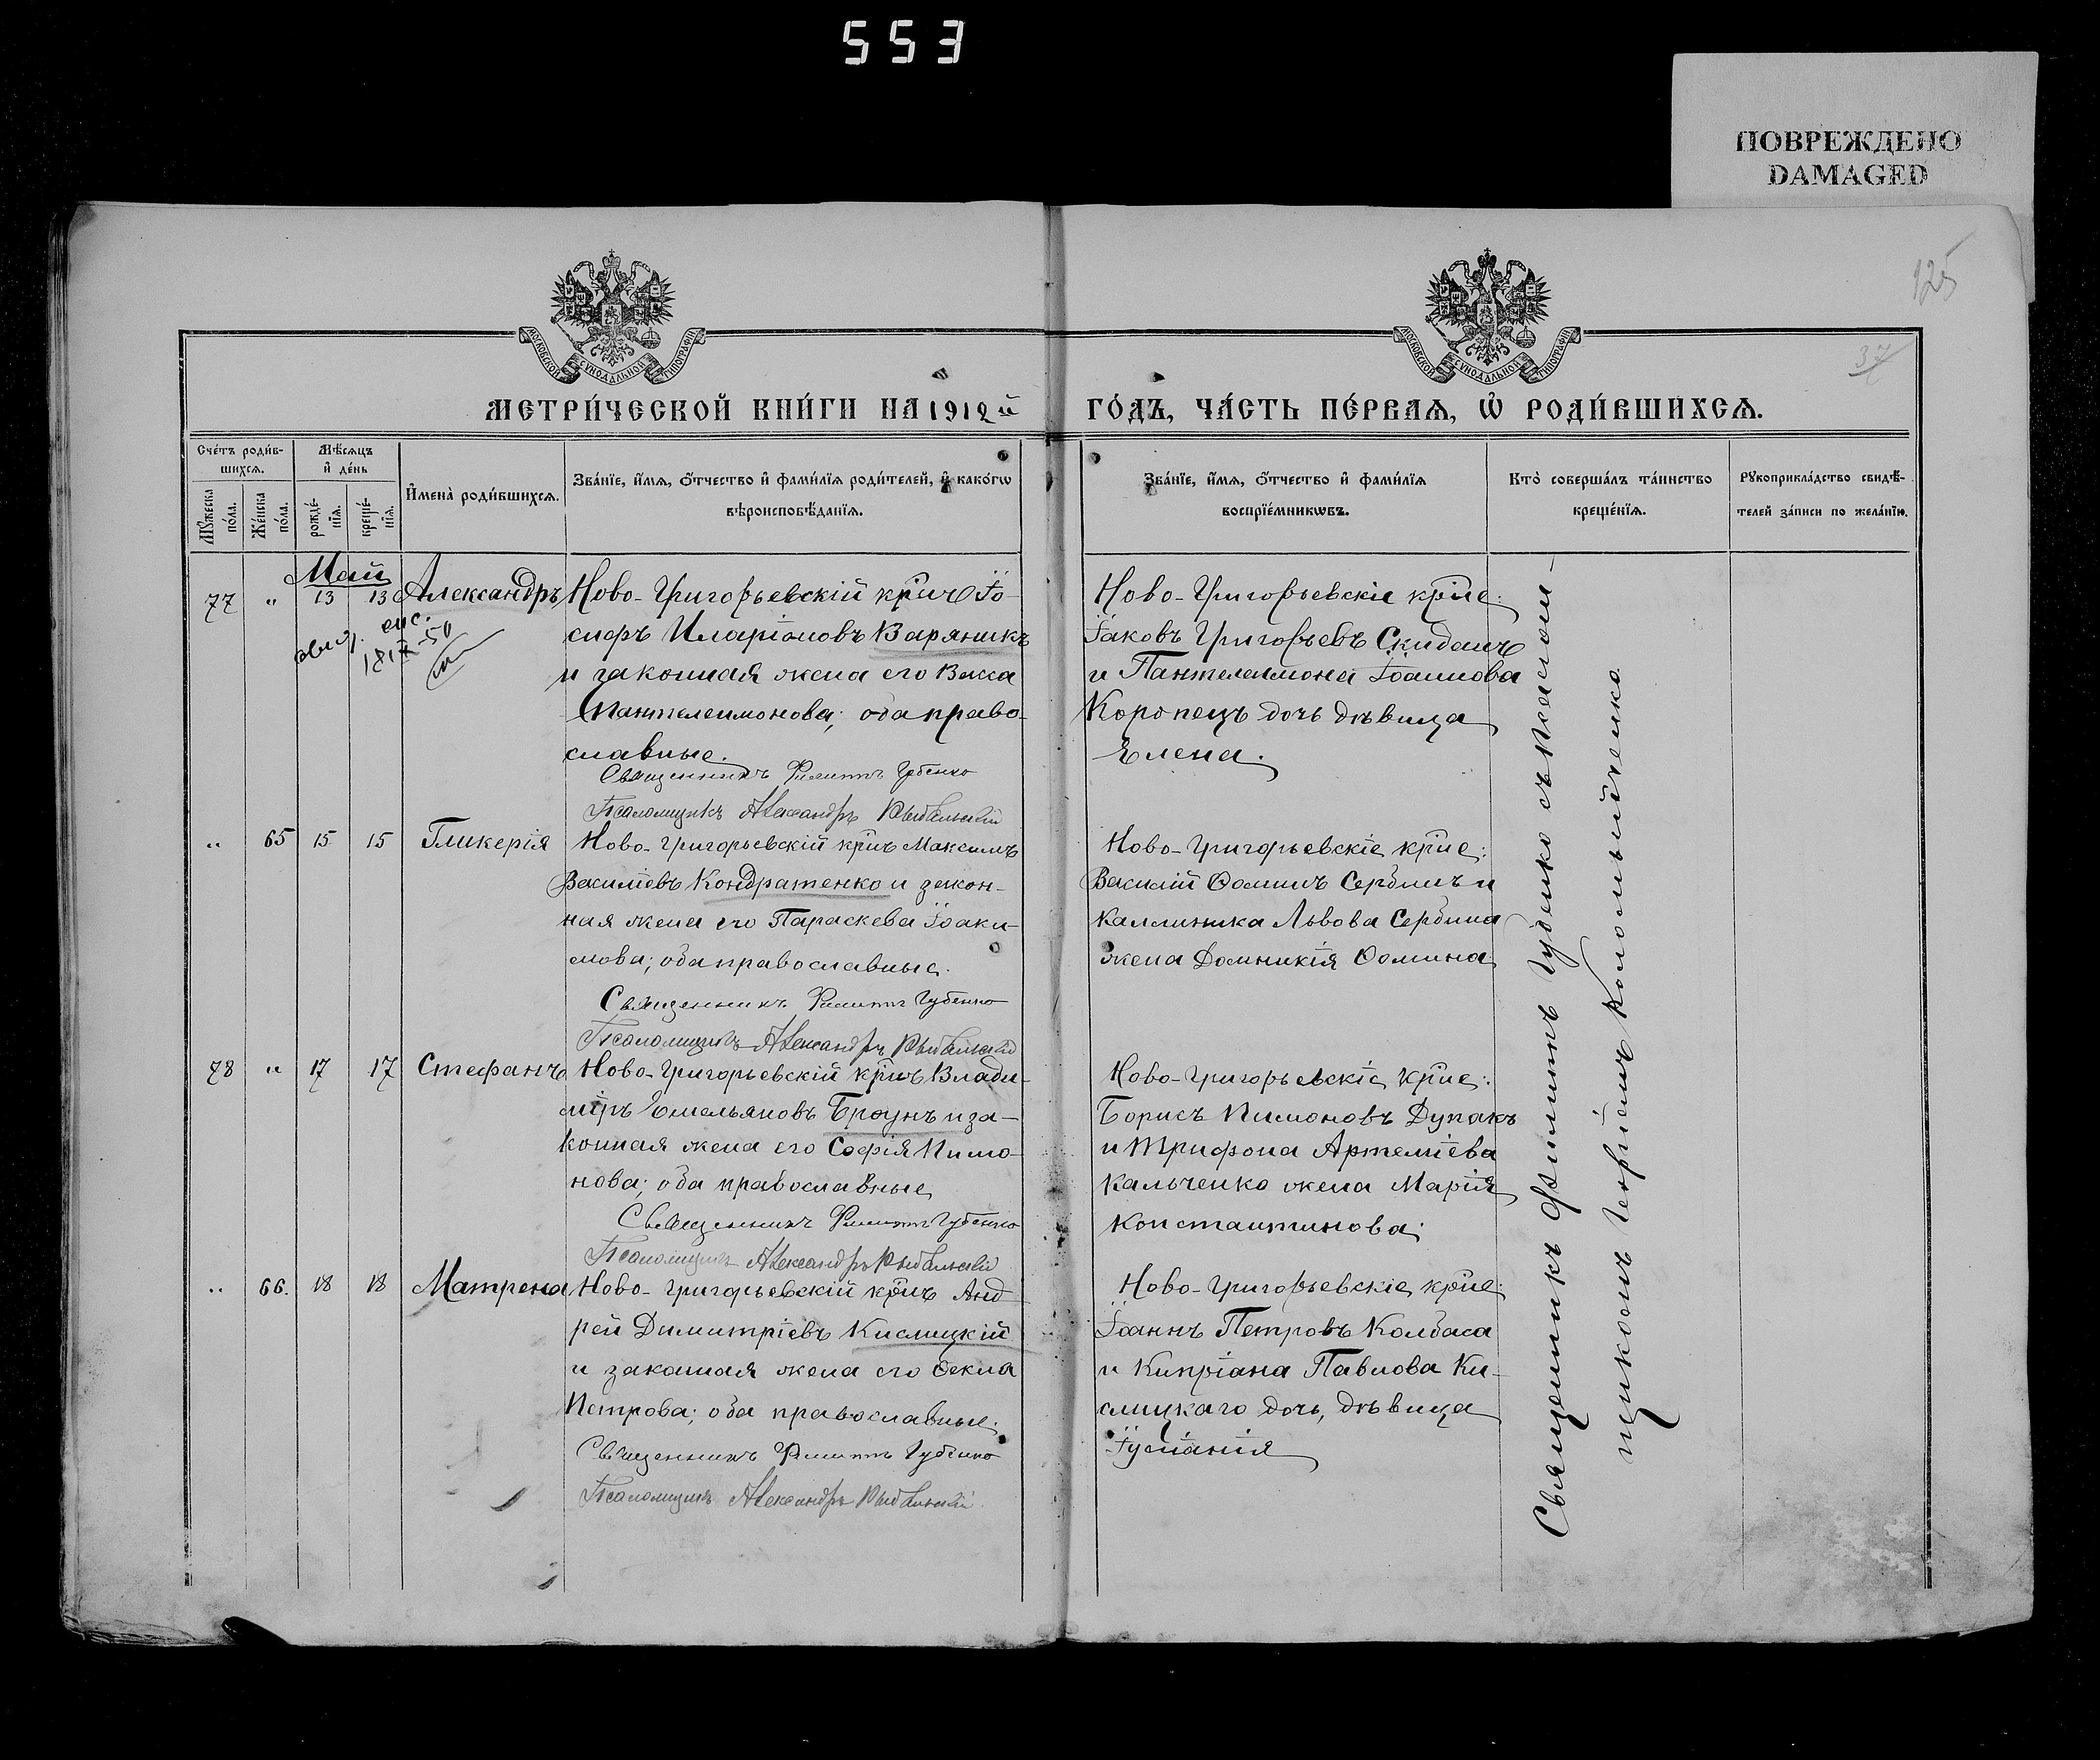 553
ПОВРЕЖДЕНО
DAMAGED
125
37
МОСКОВСКОЙ СУНОДАЛЬНОЙ ТИПОГРАФІИ
МОСКОВСКОЙ СУНОДАЛЬНОЙ ТИПОГРАФІИ
МЕТРИ́ЧЕСКОЙ КНИ́ГИ НА 1912й ГО́ДЪ, ЧА́СТЬ ПЕ́РВАѦ, Ѿ РОДИ́ВШИХСѦ.
Сче́тъ роди́в-
шихсѧ.
Мѣ́сѧцъ
и҆ де́нь
Мꙋ́жеска по́ла.
Же́нска по́ла.
рожде́-нїѧ.
креще́-нїѧ.
И҆мена̀ роди́вшихсѧ.
Зва́нїе, и҆́мѧ, ѻ҆́тчество и҆ фами́лїѧ роди́телей, и҆ како́гѡ
вѣроисповѣ́данїѧ.
Зва́нїе, и҆́мѧ, ѻ҆́тчество и҆ фами́лїѧ
воспрїе́мникѡвъ.
Кто̀ соверша́лъ та́инство
креще́нїѧ.
Рꙋкоприкла́дство свидѣ́-
телей за́писи по жела́нїю.
Май
77 " 13 13 Александръ
Ново-Григорьевскій крнъ Іо-
сифъ Иларіоновъ Варяникъ
и законная жена его Васса
Пантелеимонова; оба право-
славные.
Священникъ Филиппъ Губенко
Псаломщикъ Александръ Рыбальскій
Ново-Григорьевскіе крне:
Іаковъ Григорьевъ Скиданъ
и Пантелеимона Іоаннова
Коропецъ дочь дѣвица
Елена.
" 65 15 15 Гликерія
Ново-Григорьевскій крнъ Максимъ
Василіевъ Кондратенко и закон-
ная жена его Параскева Іоаки-
мова; оба православные.
Священникъ Филиппъ Губенко
Псаломщикъ Александръ Рыбальскій
Ново-Григорьевскіе крне:
Василій Ѳоминъ Сербинъ и
Каллиника Львова Сербина
жена Домникія Ѳомина.
78 " 17 17 Стефанъ
Ново-Григорьевскій крнъ Влади-
міръ Емельяновъ Броунъ и за-
конная жена его Софія Пимо-
нова; оба православные
Священникъ Филиппъ Губенко
Псаломщикъ Александръ Рыбальскій
Ново-Григорьевскіе крне:
Борисъ Пимоновъ Дупакъ
и Трифона Артеміева
Кальченко жена Марія
Константинова.
" 66. 18 18 Матрена
Ново-Григорьевскій крнъ Анд-
рей Димитріевъ Кислицкій
и законная жена его Ѳекла
Петрова; оба православные.
Священникъ Филиппъ Губенко
Псаломщикъ Александръ Рыбальскій
Ново-Григорьевскіе крне
Іоаннъ Петровъ Колбаса
и Кипріана Павлова Ки-
слицкаго дочь, дѣвица
Іуліанія
Священникъ Филиппъ Губенко съ псалом-
щикомъ Георгіемъ Коломыйченко